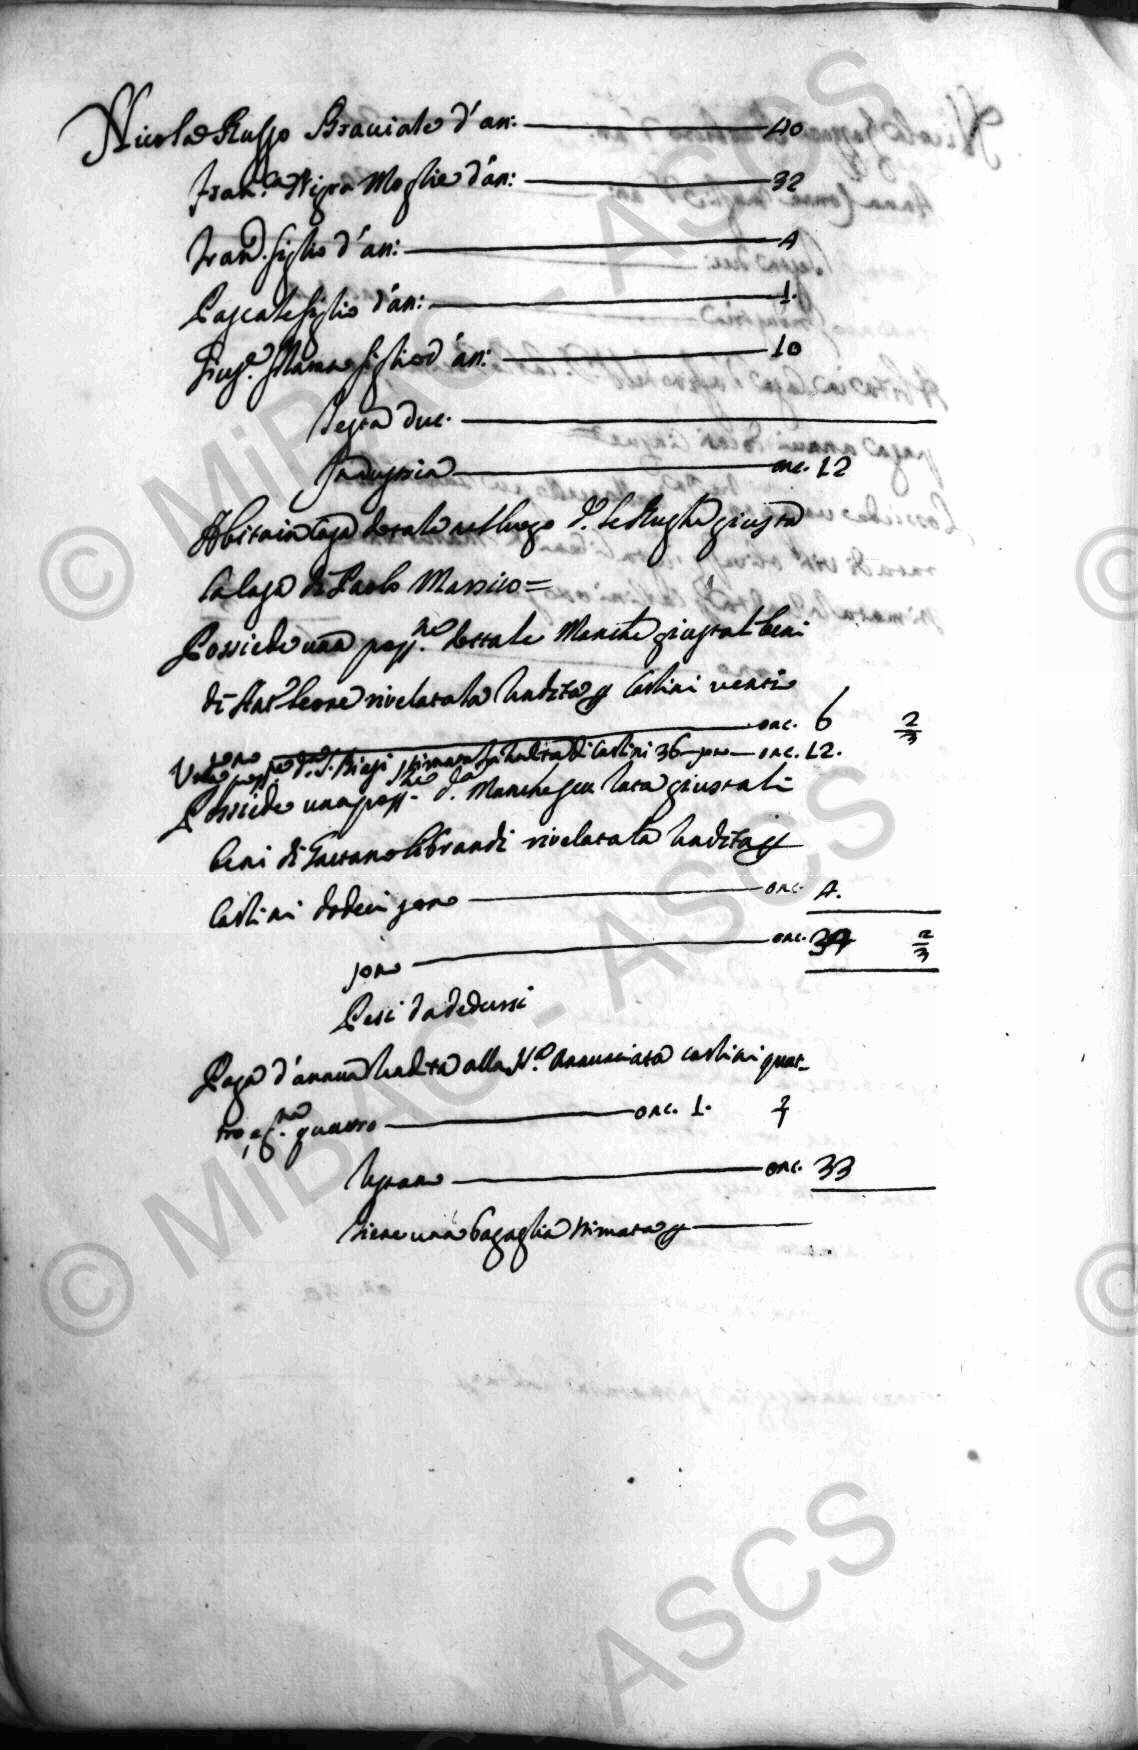 Nicola Russo Bracciale d'an: 40
Fran.ca Nigra Moglie d'an: 32
Fran.o figlio d'an: 4
Pascale figlio d'an: 1.
Gius.e figlio d'an: 10
Testa duc.
Industria onc. 12
Abita in Casa detale nel luogo d.o le giusta
la Casa di Paolo =
Possiede una poss.ne detta le Manche giusta li beni
di Ant.o Leone rivelata la rendita p Carlini venti
sono onc. 6 2/3
Una poss.ne d.a S. Biagi stimata la rendita di Carlini 36 sono onc. 12.
Possiede una poss.ne d.a Manche seu giusta li
beni di Gaetano Librandi rivelata la rendita p
Carlini dodeci sono onc. 4.
sono onc. 34 2/3
Pesi da dedursi
Paga d'annua rendita alla SS.a Annunciata carlini quat-
tro, e quattro onc. 1.
Restano onc. 33
Tiene una stimata p
© MiBAC - ASCS
© MiBAC - ASCS
ASCS
©
©